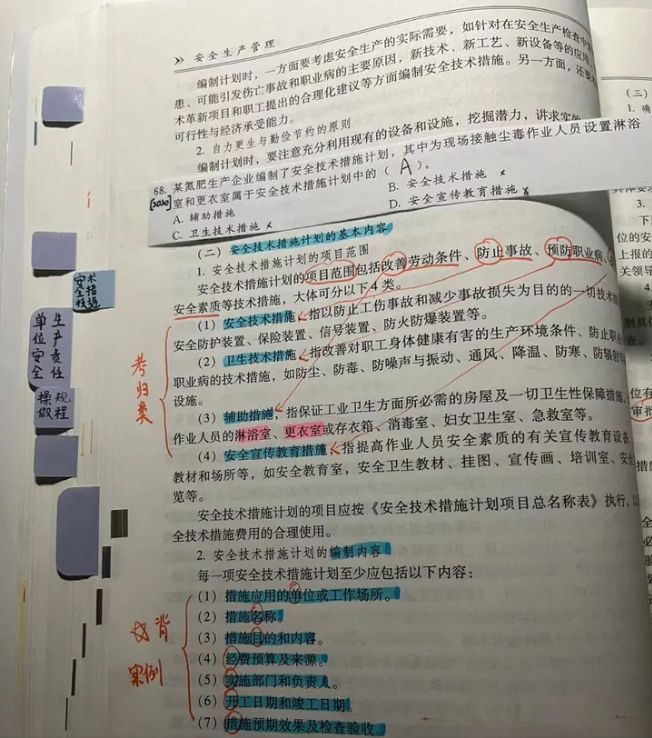 安全生产管理
编制计划时，一方面要考虑安全生产的实际需要，如针对在安全生产检查中
患、可能引发伤亡事故和职业病的主要原因，新技术、新工艺、新设备等的应用
术革新项目和职工提出的合理化建议等方面编制安全技术措施。另一方面，还要
可行性与经济承受能力。
2. 自力更生与勤俭节约的原则
编制计划时，要注意充分利用现有的设备和设施，挖掘潜力，讲求实
68. 某氮肥生产企业编制了安全技术措施计划，其中为现场接触尘毒作业人员设置淋浴
[2020] 室和更衣室属于安全技术措施计划中的（ A ）。
A. 辅助措施
B. 安全技术措施 ×
C. 卫生技术措施 ×
D. 安全宣传教育措施 ×
（二）安全技术措施计划的基本内容
1. 安全技术措施计划的项目范围
安全技术措施计划的项目范围包括改善劳动条件、防止事故、预防职业病、
安全素质等技术措施，大体可分以下4类。
（1）安全技术措施，指以防止工伤事故和减少事故损失为目的的一切技术
安全防护装置、保险装置、信号装置、防火防爆装置等。
（2）卫生技术措施，指改善对职工身体健康有害的生产环境条件、防止职
职业病的技术措施，如防尘、防毒、防噪声与振动、通风、降温、防寒、防辐射
设施。
（3）辅助措施，指保证工业卫生方面所必需的房屋及一切卫生性保障措施，
作业人员的淋浴室、更衣室或存衣箱、消毒室、妇女卫生室、急救室等。
（4）安全宣传教育措施，指提高作业人员安全素质的有关宣传教育设备
教材和场所等，如安全教育室，安全卫生教材、挂图、宣传画、培训室、安全
览等。
安全技术措施计划的项目应按《安全技术措施计划项目总名称表》执行，以
全技术措施费用的合理使用。
2. 安全技术措施计划的编制内容
每一项安全技术措施计划至少应包括以下内容：
（1）措施应用的单位或工作场所。
（2）措施名称。
（3）措施目的和内容。
（4）经费预算及来源。
（5）实施部门和负责人。
（6）开工日期和竣工日期。
（7）措施预期效果及检查验收。
考归类
背
案例
安全技术措施
生产责任
单位安全
操规
做程
（三）
3.
下
位的安
上报的
关领导
4.
位有
审批